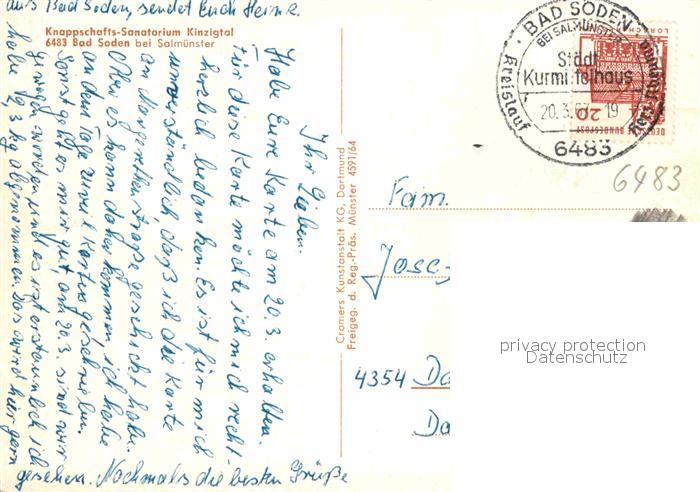 aus Bad Soden, sendet Euch Heinr.
Knappschafts-Sanatorium Kinzigtal
6483 Bad Soden bei Salmünster
Ihr Lieben.
Habe Eure Karte am 20.3. erhalten.
Für diese Karte möchte ich mich recht
herzlich bedanken. Es ist für mich
unverständlich daß ich die Karte
an Margarethenstraße geschickt habe.
Aber es kann daher kommen, ich habe
an dem Tage zuviel Karten geschrieben.
Sonst geht es mir gut, am 20.3. sind wir
gewogen worden und es ist erstaunlich ich
habe 1g 3 kg abgenommen. Das wird hier gern
gesehen. Nochmals die besten Grüße
Cramers Kunstanstalt KG, Dortmund
Freigeg. d. Reg.-Präs. Münster 4591/64
BAD SODEN
BEI SALMÜNSTER
Städt
Kurmittelhaus
20.3.67-19
Kreislauf
Herz
6483
LORSCH
20
DEUTSCHE BUNDESPOST
6483
Fam.
Josef
4354 Da
Da
privacy protection
Datenschutz